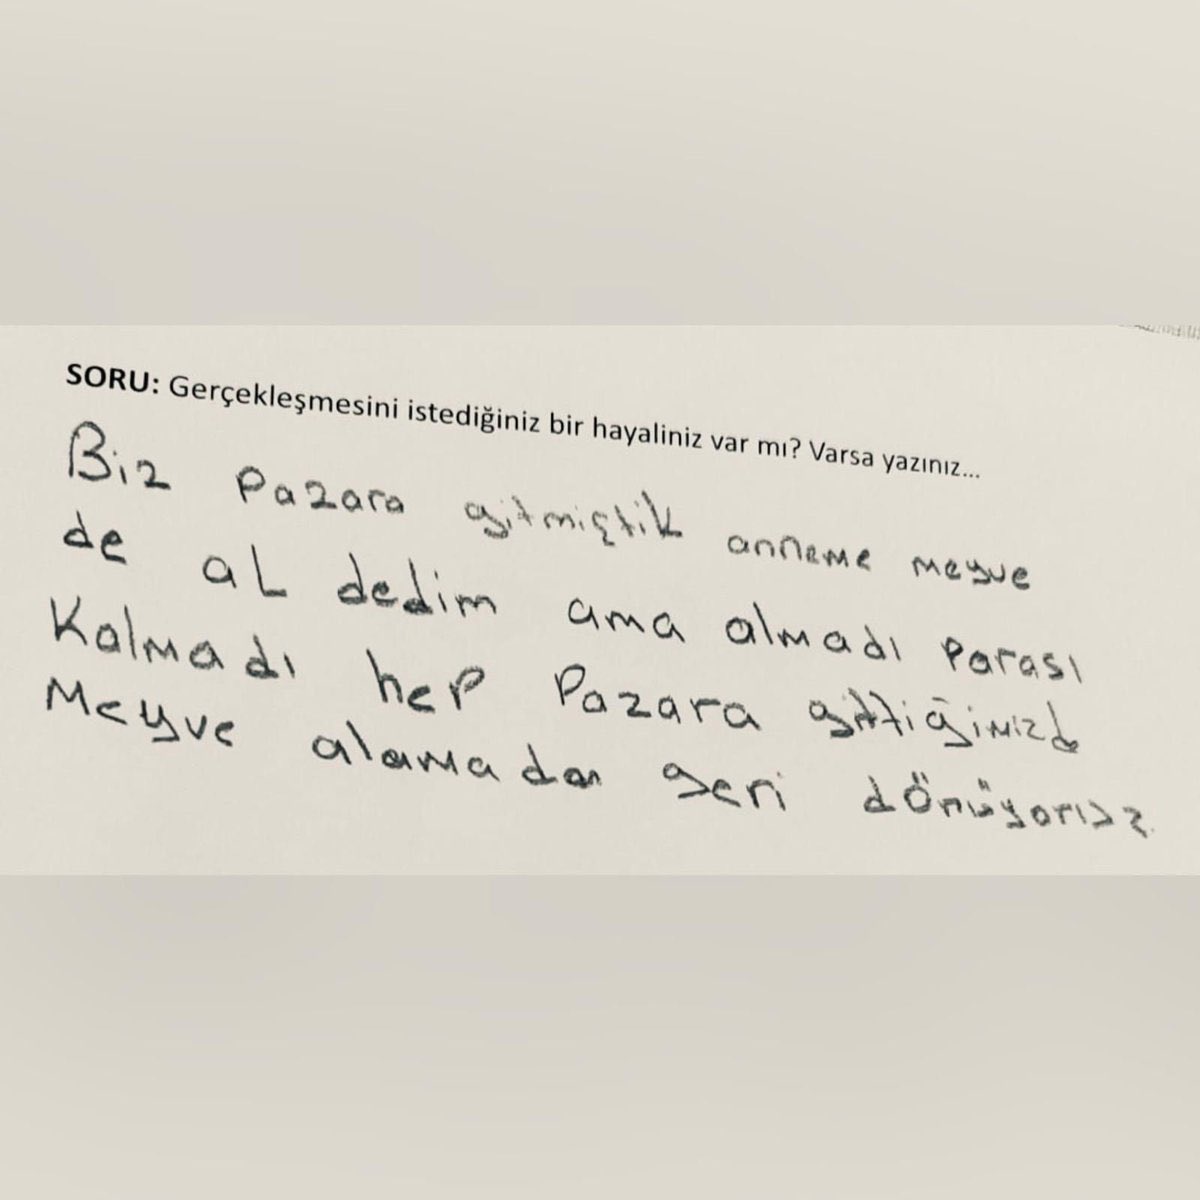 SORU: Gerçekleşmesini istediğiniz bir hayaliniz var mı? Varsa yazınız...
Biz Pazara gitmiştik anneme meyve
de al dedim ama almadı Parası
Kalmadı heP Pazara gittiğimizde
Meyve alamadan geri dönüyoruz